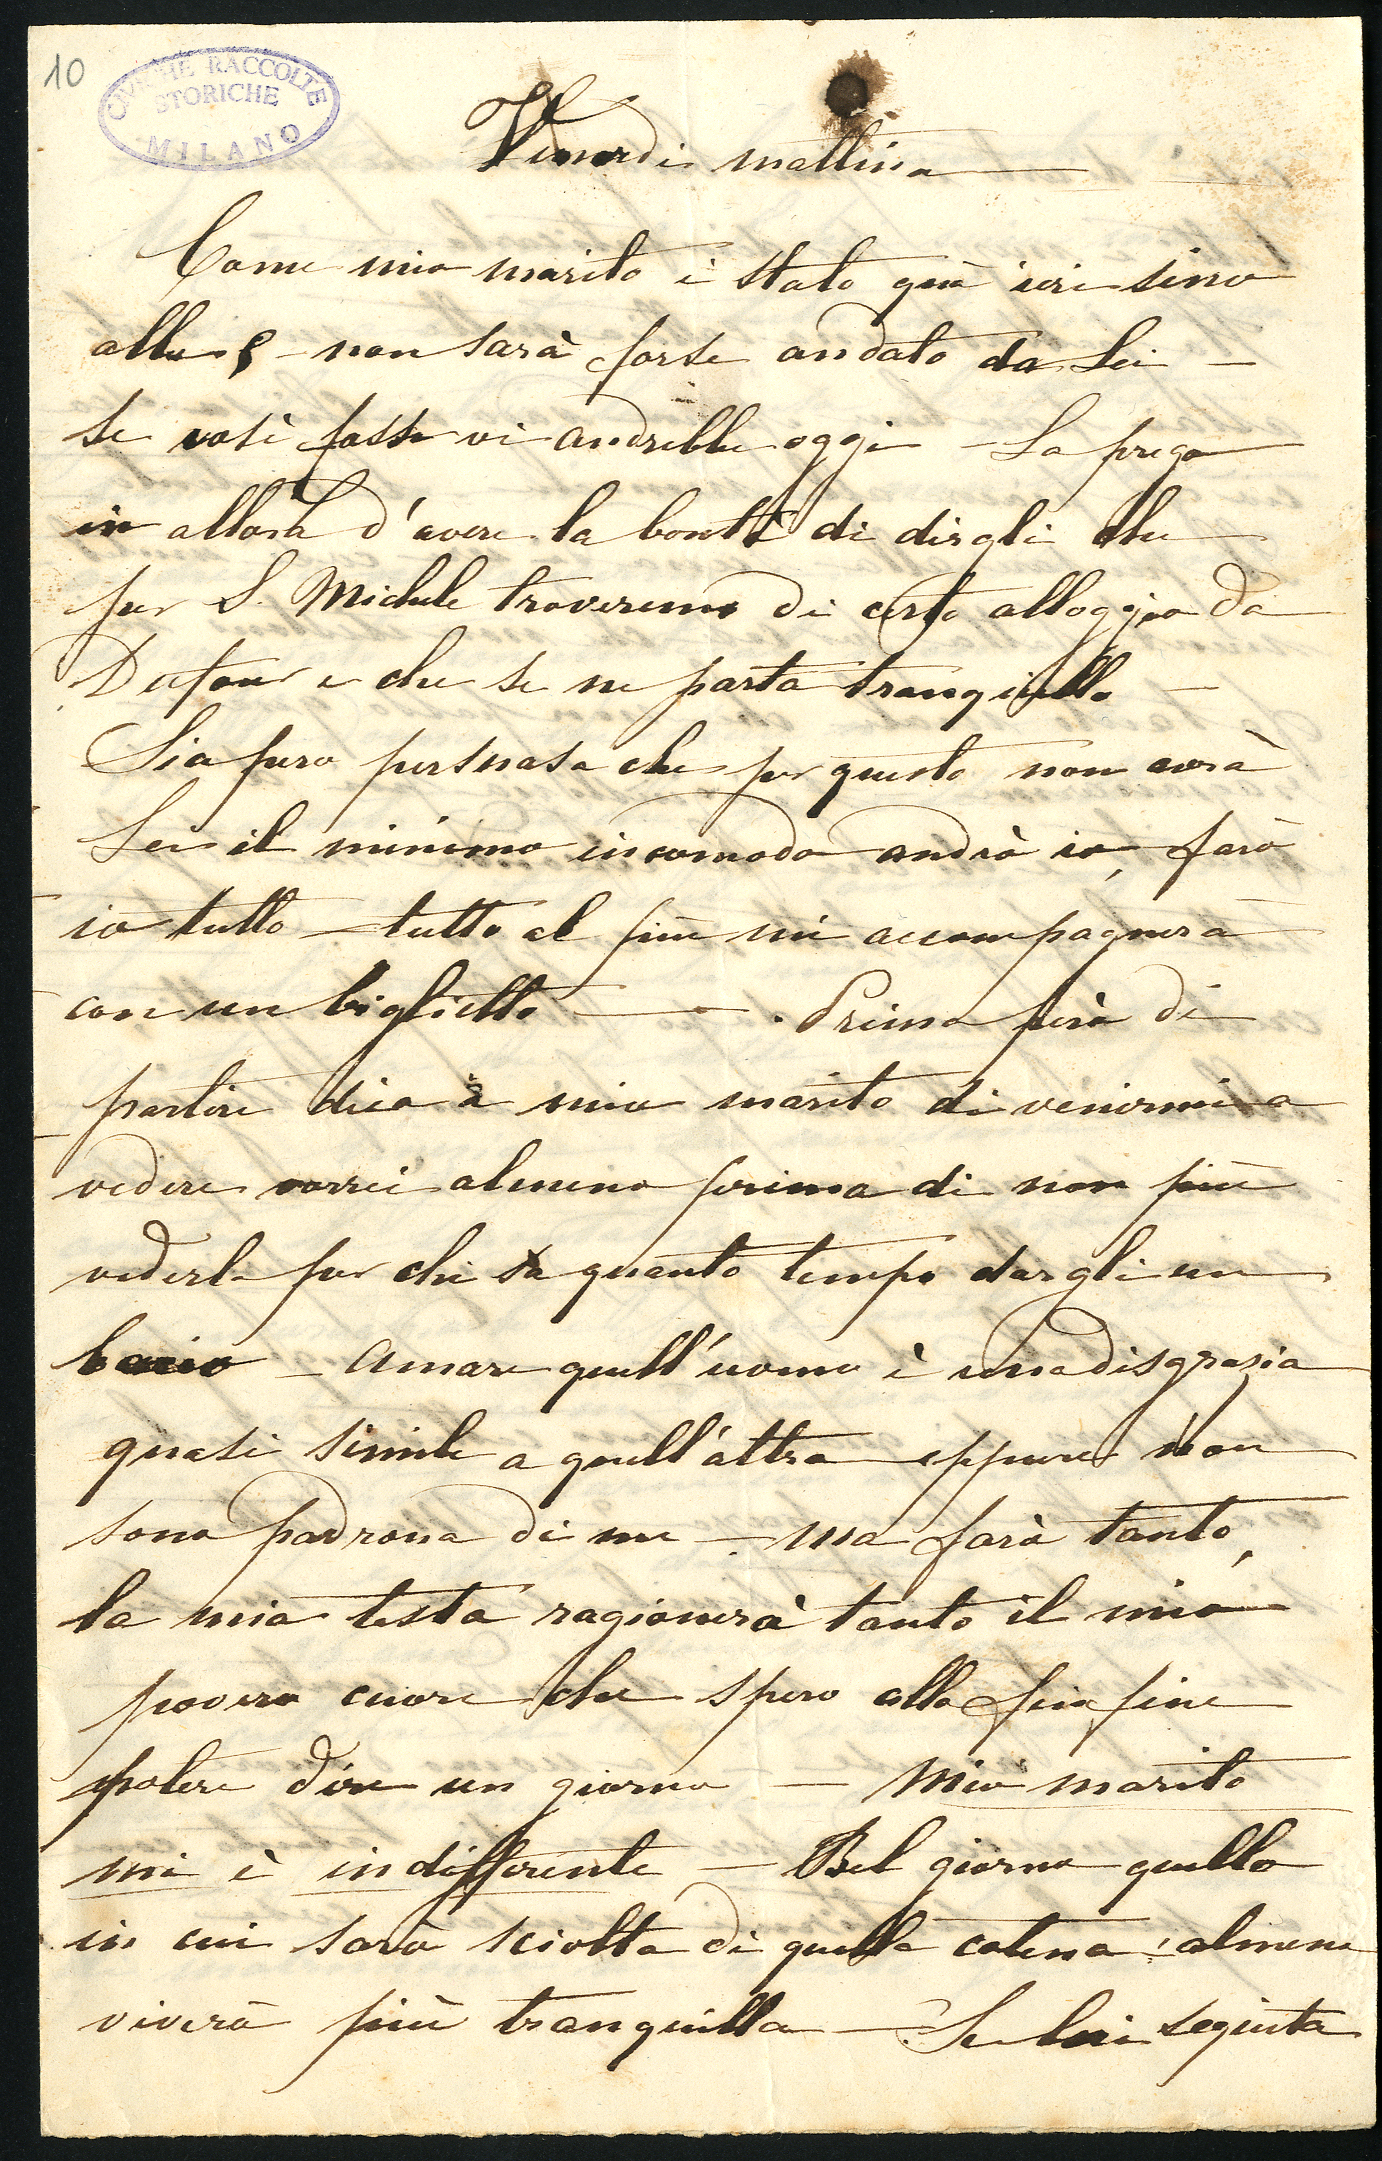 10
CIVICHE RACCOLTE
STORICHE
MILANO
Venerdì mattina
Come mio marito è stato quà ieri sino
alle non sarà forse andato da Lei –
se così fosse vi andrebbe oggi – La prego
in allora d'avere la bontà di dirgli che
per S. Michele troveremo di certo alloggio da
Dufour e che se ne parta tranquillo –
Sia pure persuasa che per questo non avrà
Lei il minimo incomodo andrò io, farò
io tutto – tutto al più mi accompagnerà
con un biglietto — Prima però di
partire dica à mio marito di venirmi a
vedere vorrei almeno prima di non più
vederlo per chi sa quanto tempo dargli un
bacio – Amare quell'uomo è una disgrazia
quasi simile a quell'altra eppure non
sono padrona di me – ma farò tanto,
la mia testa ragionerà tanto il mio
povero cuore che spero alla fin fine
potere dire un giorno — Mio marito
mi è indifferente — Bel giorno quello
in cui sarò sciolta di quella catena! almeno
viverò più tranquilla – Se lui seguita